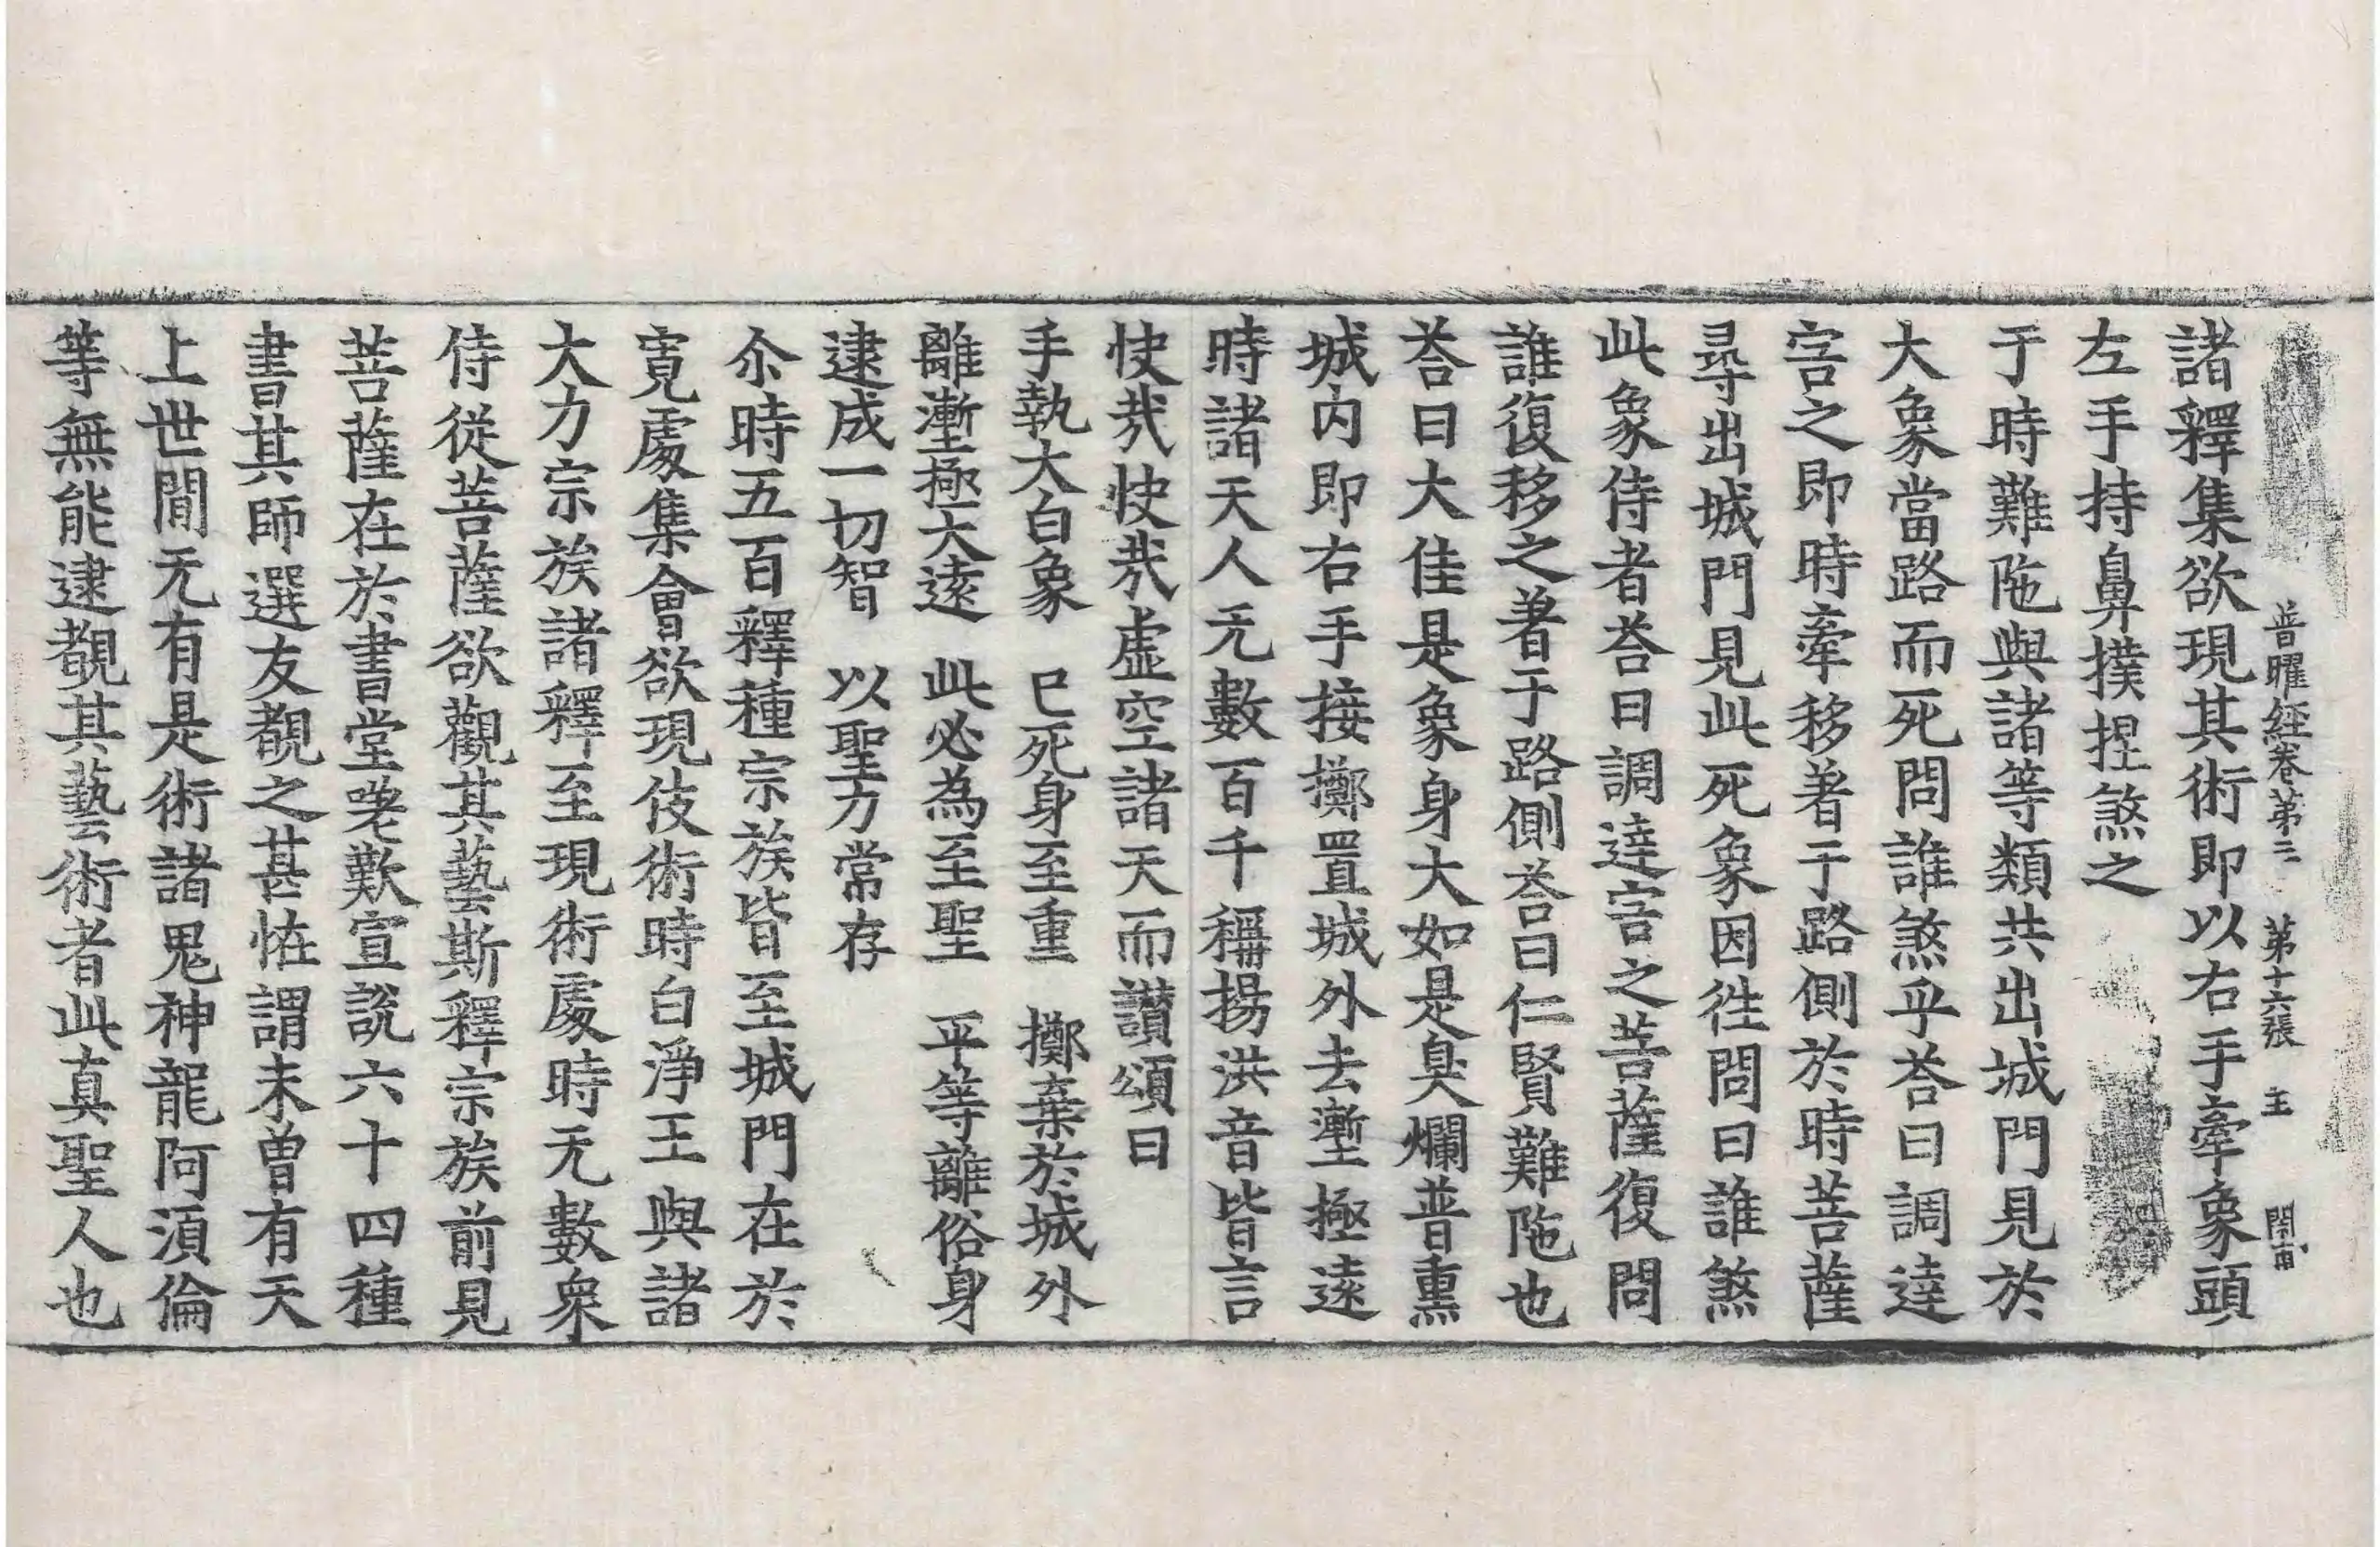 普曜經卷第三 第十六張 主
諸釋集欲現其術即以右手牽象頭
左手持鼻撲捏煞之
于時難陁與諸等類共出城門見於
大象當路而死問誰煞乎荅曰調達
害之即時牽移著于路側於時菩薩
尋出城門見此死象因徃問曰誰煞
此象侍者荅曰調達害之菩薩復問
誰復移之著于路側荅曰仁賢難陁也
荅曰大佳是象身大如是臭爛普熏
城内即右手接擲置城外去壍極遠
時諸天人无數百千稱揚洪音皆言
快㢤快㢤虛空諸天而讃頌曰
手執大白象 已死身至重 擲棄於城外
離壍極大遠 此必為至聖 平等離俗身
逮成一切智 以聖方常存
尒時五百釋種宗族皆至城門在於
寬處集會欲現伎術時白淨王與諸
大力宗族諸釋至現術處時无數衆
侍從菩薩欲觀其藝斯釋宗族前見
菩薩在於書堂嗟歎宣說六十四種
書其師選友覩之甚恠謂未曾有天
上世間无有是術諸鬼神龍阿湏倫
等無能逮覩其藝術者此真聖人也